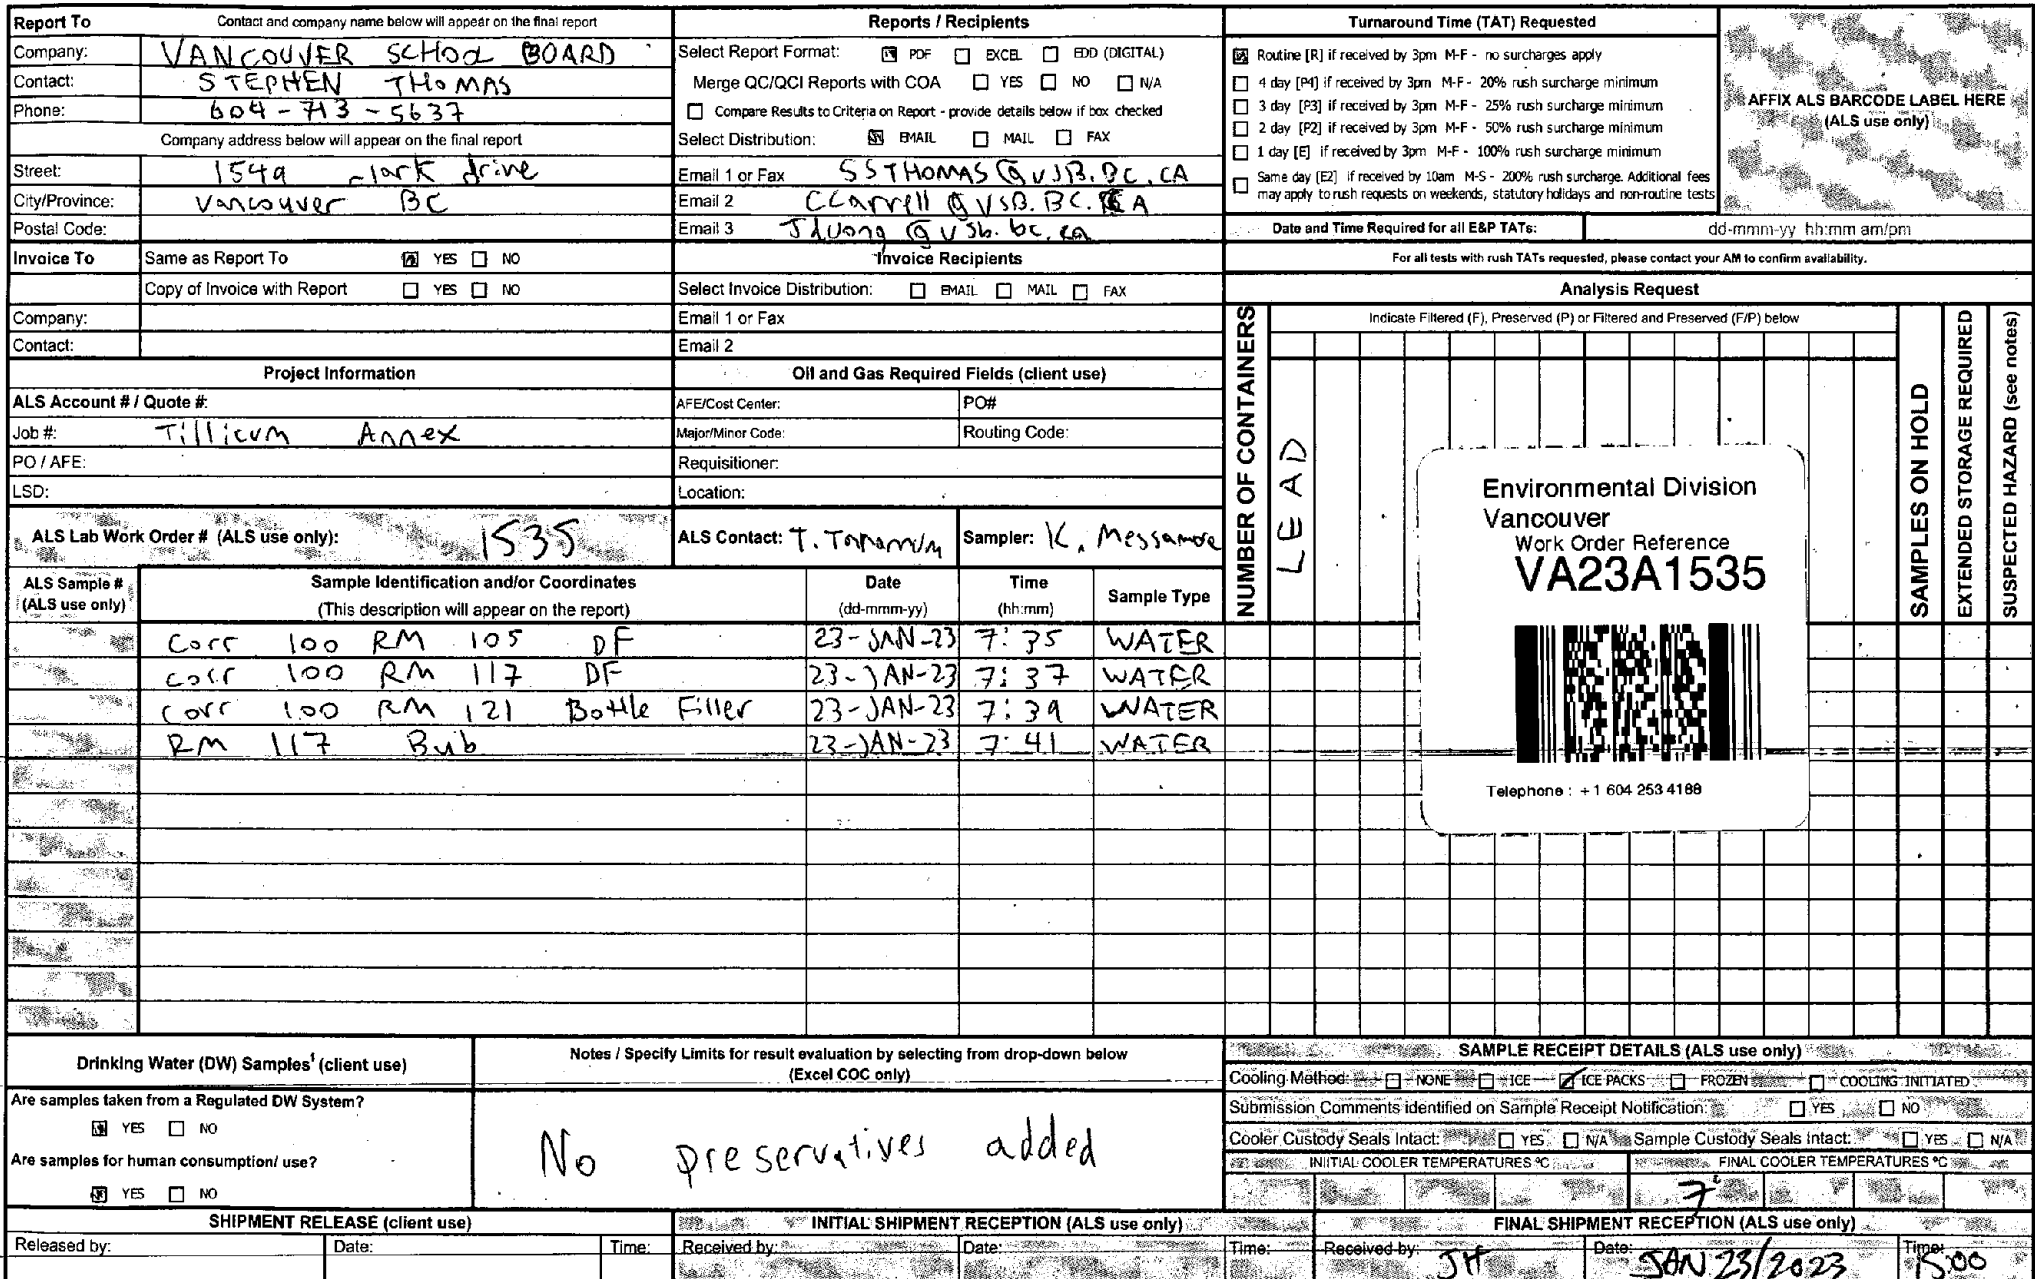 Report To Contact and company name below will appear on the final report
Company: VANCOUVER SCHOOL BOARD
Contact: STEPHEN THOMAS
Phone: 604-713-5637
Company address below will appear on the final report
Street: 1549 clark drive
City/Province: Vancouver BC
Postal Code:
Invoice To Same as Report To YES NO
Copy of Invoice with Report YES NO
Company:
Contact:
Project Information
ALS Account # / Quote #:
Job #: Tillicum Annex
PO / AFE:
LSD:
ALS Lab Work Order # (ALS use only): 1535
Reports / Recipients
Select Report Format: PDF EXCEL EDD (DIGITAL)
Merge QC/QCI Reports with COA YES NO N/A
Compare Results to Criteria on Report - provide details below if box checked
Select Distribution: EMAIL MAIL FAX
Email 1 or Fax SSTHOMAS@VSB.BC.CA
Email 2 CCarrell@VSB.BC.CA
Email 3 Jduong@vsb.bc.ca
Invoice Recipients
Select Invoice Distribution: EMAIL MAIL FAX
Email 1 or Fax
Email 2
Oil and Gas Required Fields (client use)
AFE/Cost Center: PO#
Major/Minor Code: Routing Code:
Requisitioner:
Location:
ALS Contact: T. Sampler: K. Messamore
Turnaround Time (TAT) Requested
Routine [R] if received by 3pm M-F - no surcharges apply
4 day [P4] if received by 3pm M-F - 20% rush surcharge minimum
3 day [P3] if received by 3pm M-F - 25% rush surcharge minimum
2 day [P2] if received by 3pm M-F - 50% rush surcharge minimum
1 day [E] if received by 3pm M-F - 100% rush surcharge minimum
Same day [E2] if received by 10am M-S - 200% rush surcharge. Additional fees
may apply to rush requests on weekends, statutory holidays and non-routine tests
AFFIX ALS BARCODE LABEL HERE
(ALS use only)
Date and Time Required for all E&P TATs: dd-mmm-yy hh:mm am/pm
For all tests with rush TATs requested, please contact your AM to confirm availability.
Analysis Request
Indicate Filtered (F), Preserved (P) or Filtered and Preserved (F/P) below
NUMBER OF CONTAINERS
LEAD
SAMPLES ON HOLD
EXTENDED STORAGE REQUIRED
SUSPECTED HAZARD (see notes)
Environmental Division
Vancouver
Work Order Reference
VA23A1535
Telephone : +1 604 253 4188
ALS Sample # (ALS use only) Sample Identification and/or Coordinates (This description will appear on the report) Date (dd-mmm-yy) Time (hh:mm) Sample Type
Corr 100 RM 105 DF 23-JAN-23 7:35 WATER
Corr 100 RM 117 DF 23-JAN-23 7:37 WATER
Corr 100 RM 121 Bottle Filler 23-JAN-23 7:39 WATER
RM 117 Bub 23-JAN-23 7:41 WATER
Drinking Water (DW) Samples¹ (client use)
Are samples taken from a Regulated DW System?
YES NO
Are samples for human consumption/ use?
YES NO
Notes / Specify Limits for result evaluation by selecting from drop-down below
(Excel COC only)
No preservatives added
SAMPLE RECEIPT DETAILS (ALS use only)
Cooling Method: NONE ICE ICE PACKS FROZEN COOLING INITIATED
Submission Comments identified on Sample Receipt Notification: YES NO
Cooler Custody Seals Intact: YES N/A Sample Custody Seals Intact: YES N/A
INIITIAL COOLER TEMPERATURES ºC FINAL COOLER TEMPERATURES ºC
7
SHIPMENT RELEASE (client use) INITIAL SHIPMENT RECEPTION (ALS use only) FINAL SHIPMENT RECEPTION (ALS use only)
Released by: Date: Time: Received by: Date: Time: Received by: JH Date: JAN 23/2023 Time: 15:00